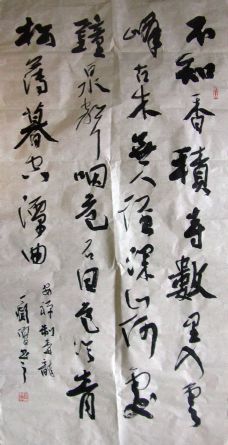 不知香積寺數里入雲
峰古木無人徑深山何處
鐘泉聲咽危石日色冷青
松薄暮空潭曲
安禪制毒龍